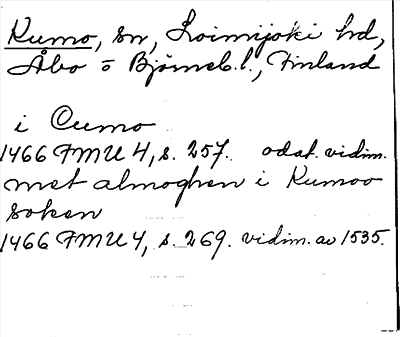 Kumo, sn, Loimijoki hd,
Åbo o Björneb. l., Finland
i Cumo
1466 FMU 4, s. 257. odat. vidim.
met almoghen i Kumoo
soken
1466 FMU 4, s. 269. vidim. av 1535.